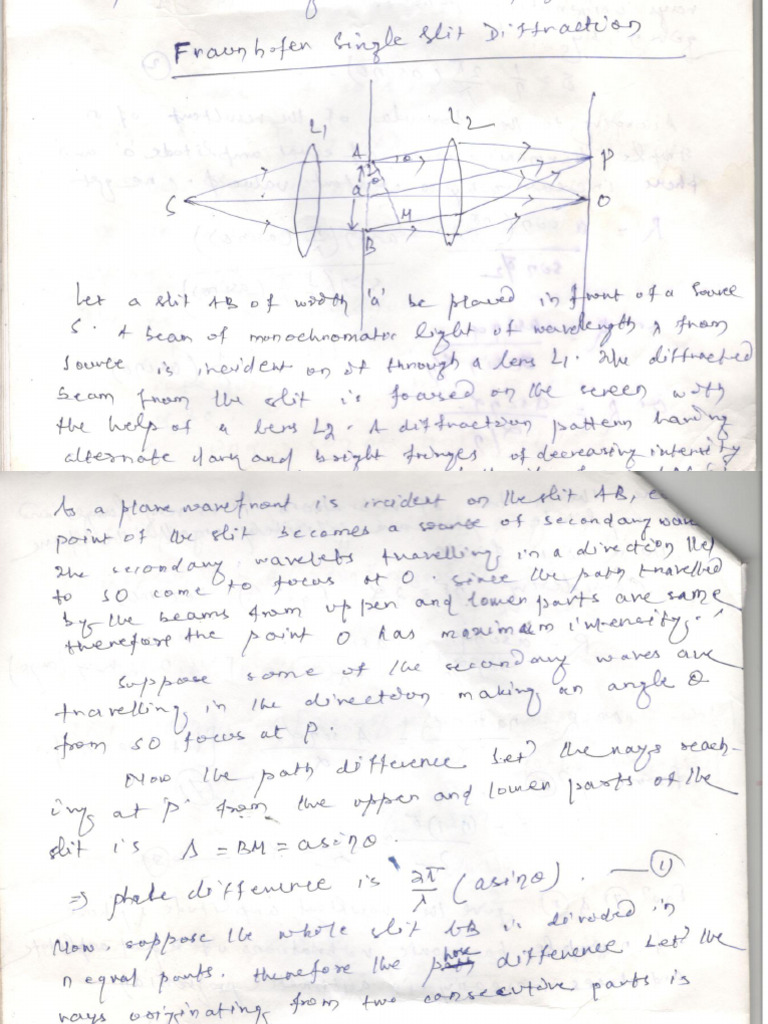 Fraunhofer Single Slit Diffraction
L1
L2
A
θ
P
θ
a
S
O
M
B
Let a slit AB of width 'a' be placed in front of a source
S. A beam of monochromatic light of wavelength λ from
source is incident on it through a lens L1. The diffracted
beam from the slit is focused on the screen with
the help of a lens L2. A diffraction pattern having
alternate dark and bright fringes of decreasing intensity
As a plane wavefront is incident on the slit AB,
point of the slit becomes a source of secondary
The secondary wavelets travelling in a direction llel
to SO come to focus at O. since the path travelled
by the beams from upper and lower parts are same
therefore the point O has maximum intensity.
Suppose some of the secondary waves are
travelling in the direction making an angle θ
from SO focus at P.
Now the path difference bet^n the rays reach-
ing at 'P' from the upper and lower parts of the
slit is Δ = BM = a sinθ.
⇒ phase difference is 2π/λ (a sinθ). —①
Now suppose the whole slit AB is divided in
n equal parts. therefore the phase difference bet^n the
rays originating from two consecutive parts is